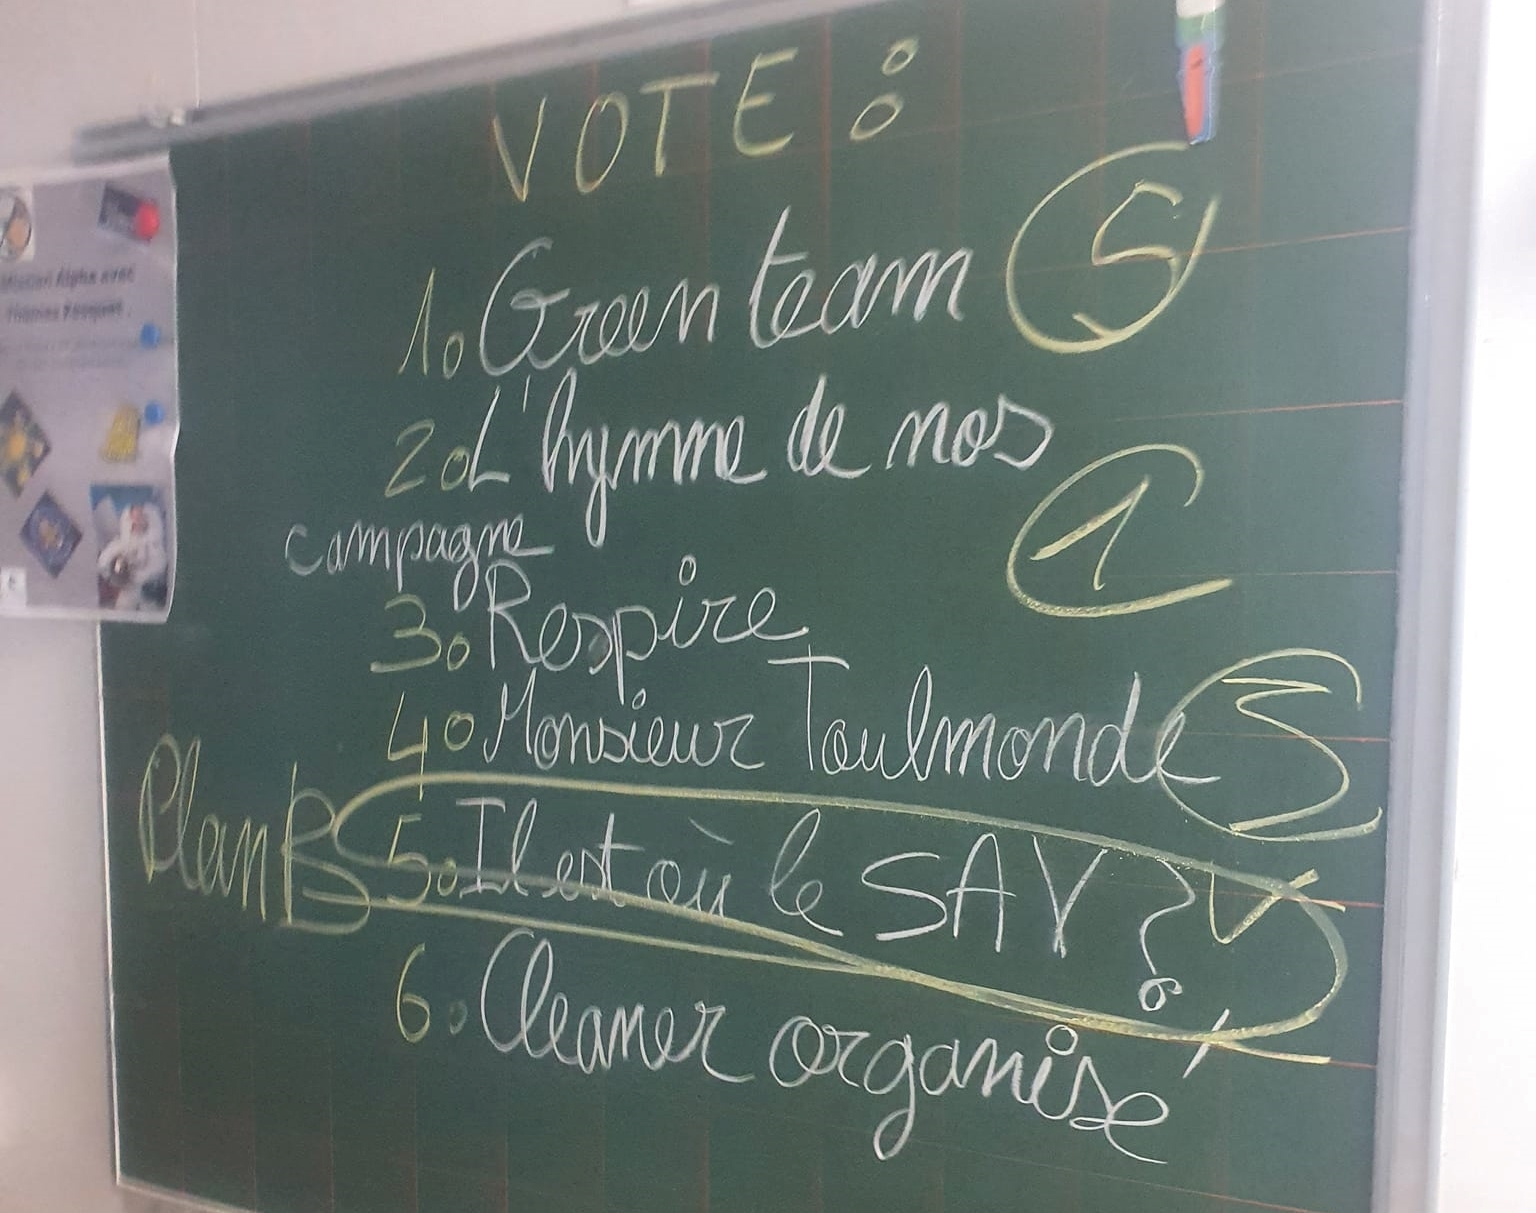 VOTE :
1. Green team 5
2. L'hymne de nos
campagne 1
3. Respire
4. Monsieur Toulmonde 3
Plan B 5. Il est où le SAV ? V
6. Cleaner organisé
Mission Alpha avec
Thomas Pesquet.